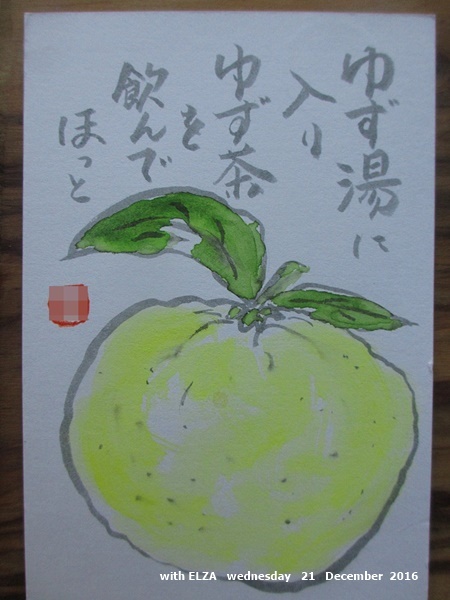 ゆず湯に
入り
ゆず茶
を
飲んで
ほっと
with ELZA wednesday 21 December 2016